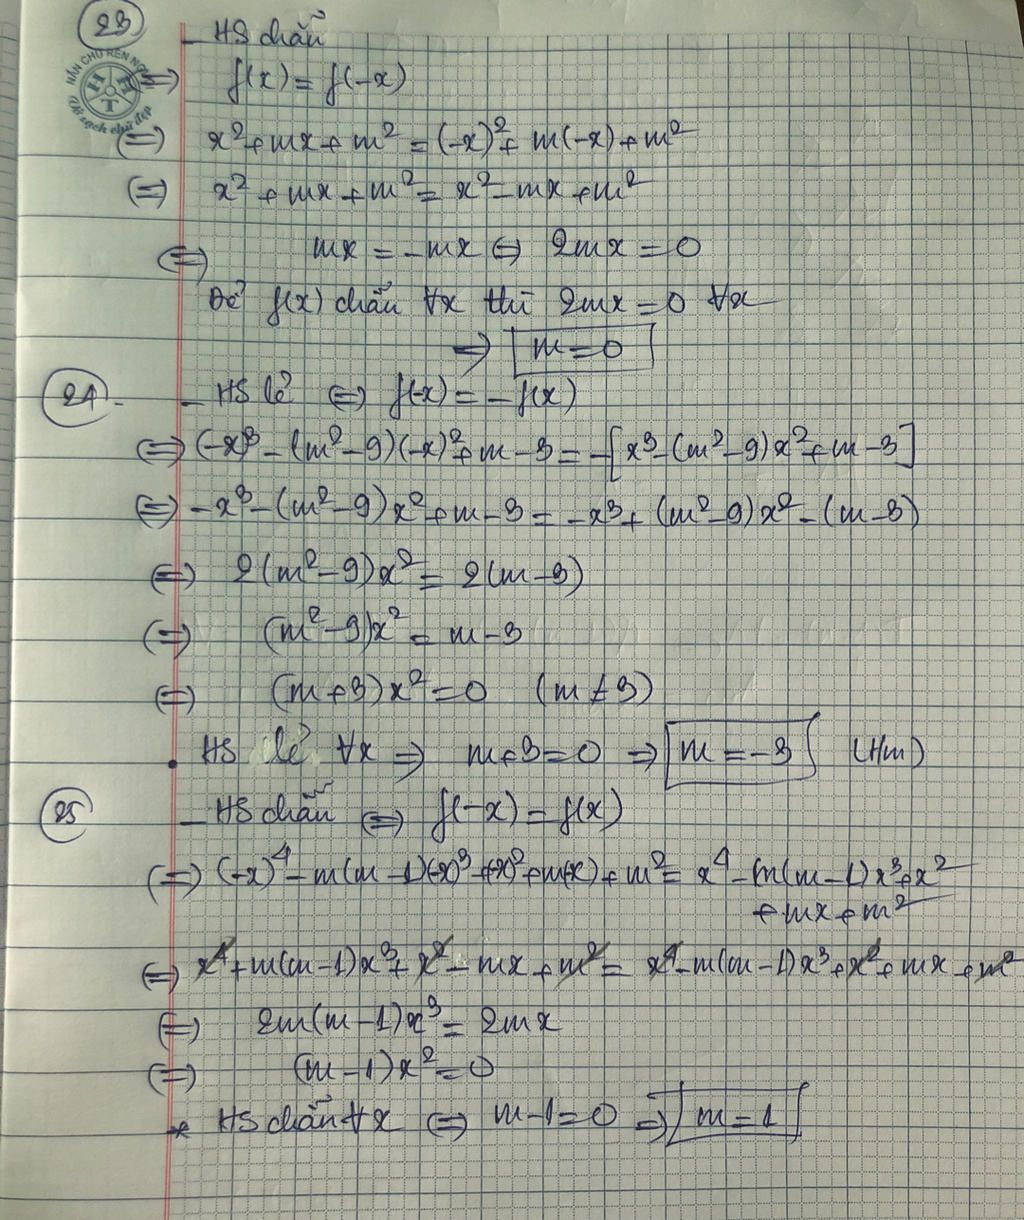 23
- HS chẵn
NẮN CHỮ RÈN NGƯỜI
H H T
Vở sạch chữ đẹp
⇔ f(x) = f(-x)
⇔ x² + mx + m² = (-x)² + m(-x) + m²
⇔ x² + mx + m² = x² - mx + m²
⇔ mx = -mx ⇔ 2mx = 0
Để f(x) chẵn ∀x thì 2mx = 0 ∀x
⇒ m = 0
24 - - HS lẻ ⇔ f(-x) = -f(x)
⇔ (-x)³ - (m² - 9)(-x)² + m - 3 = -[x³ - (m² - 9)x² + m - 3]
⇔ -x³ - (m² - 9)x² + m - 3 = -x³ + (m² - 9)x² - (m - 3)
⇔ 2(m² - 9)x² = 2(m - 3)
⇔ (m² - 9)x² = m - 3
⇔ (m + 3)x² = 0 (m ≠ 3)
• HS lẻ ∀x ⇒ m + 3 = 0 ⇒ m = -3 (Hm)
25 - HS chẵn ⇔ f(-x) = f(x)
⇔ (-x)⁴ - m(m - 1)(-x)³ + (-x)² + m(-x) + m² = x⁴ - m(m - 1)x³ + x²
+ mx + m²
⇔ x⁴ + m(m - 1)x³ + x² - mx + m² = x⁴ - m(m - 1)x³ + x² + mx + m²
⇔ 2m(m - 1)x³ = 2mx
⇔ (m - 1)x² = 0
* HS chẵn ∀x ⇔ m - 1 = 0 ⇒ m = 1